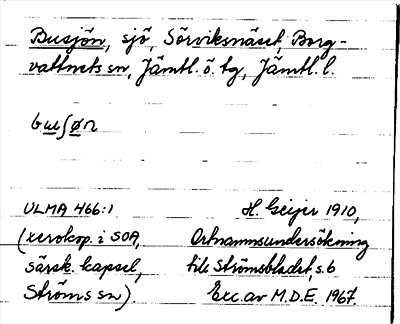 Busjön, sjö, Sörviksnäset, Borg-
vattnets sn, Jämtl. ö. tg, Jämtl. l.
buʃøn
ULMA 466:1 H. Geijer 1910,
(xerokop. i SOA, Ortnamnsundersökning
särsk. kapsel, till Strömsbladet, s. 6
Ströms sn) Exc. av M.D.E. 1967.